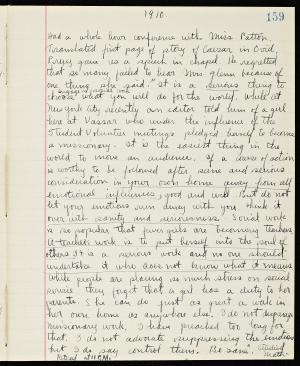 1910
159
Had a whole hour conference with Miss Patton.
Translated first page of story of Caesar in Ovid.
Prexy gave us a speech in chapel. He regretted
that so many failed to hear Mrs Glenn because of
one thing she said. "It is a serious thing to
choose what you will do for the world. While at
New York City recently an editor told him of a girl
here at Vassar who under the influence of the
Student Volunteer meetings pledged herself to become
a missionary. It is the easiest thing in the
world to move an audience. If a class of action
is worthy to be followed after sane and serious
consideration in your own home away from all
emotional influences, good and well. But do not
let your emotions run away with you. Think it
over with sanity and seriousness. Social work
is so popular that fewer girls are becoming teachers.
A teacher's work is to put herself into the soul of
others. It is a serious work and no one should
undertake it who does not know what it means.
While people are placing so much stress on social
service they forget that a girl has a duty to her
parents. She can do just as great a work in
her own home as anywhere else. I do not
missionary work, I have preached too long for
that. I do not advocate suppressing the emotions
but I do say control them. Be sane." Studied
Retired at 11 P.M. Math.